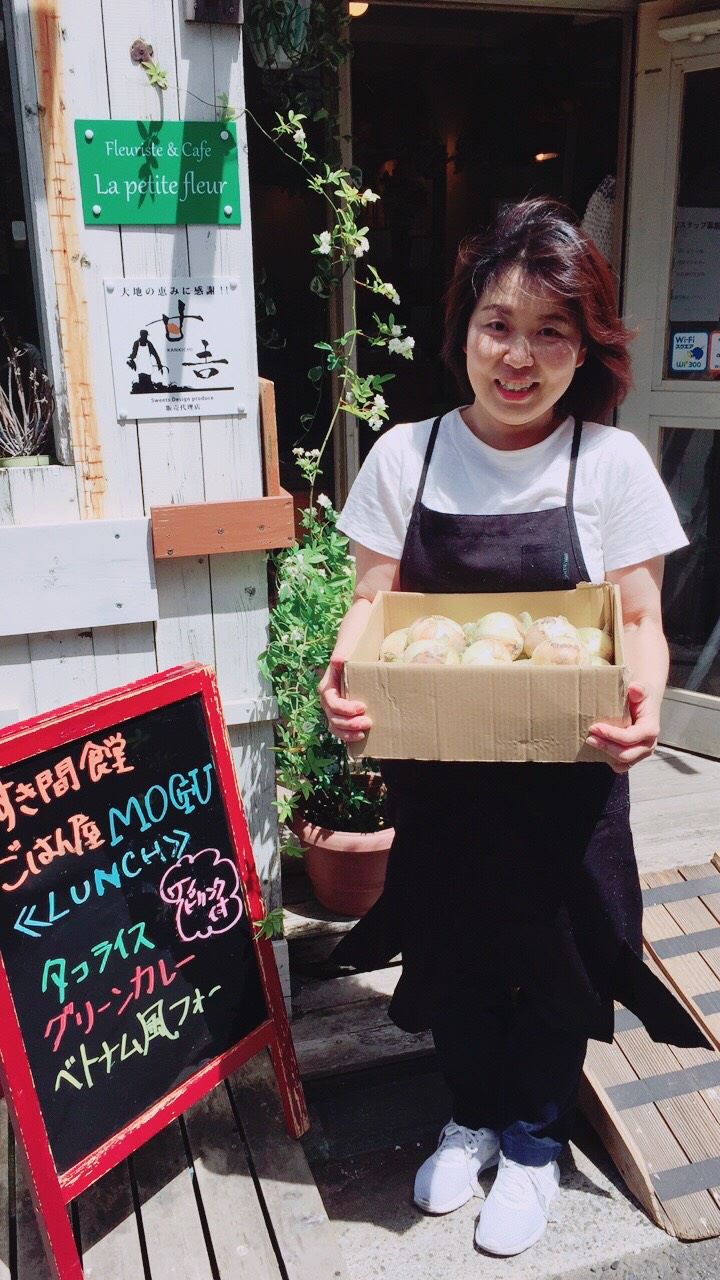 Fleuriste & Cafe
La petite fleur
大地の恵みに感謝!!
甘
KANKICHI
吉
Sweets Design produce
販売代理店
Wi-Fi
スクエア
Wi2 300
すき間食堂
ごはん屋MOGU
≪LUNCH≫
付
タコライス
グリーンカレー
ベトナム風フォー